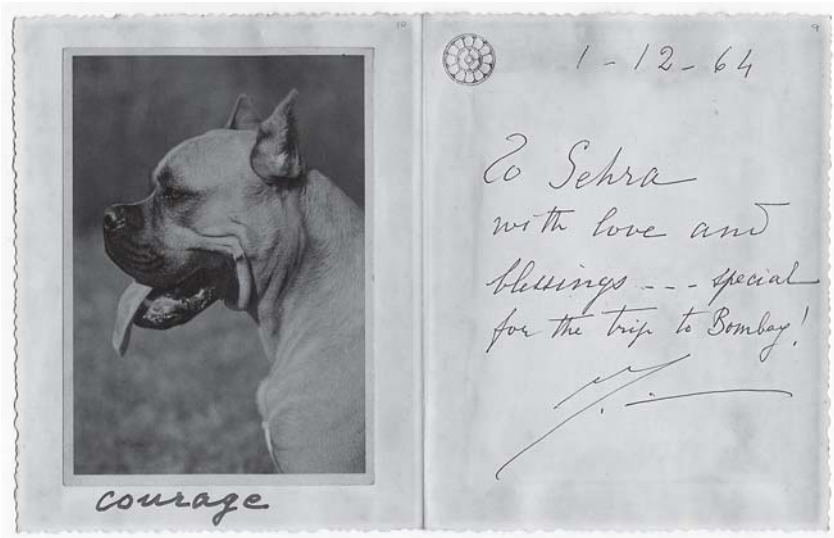 10
courage
9
1-12-64
To Sehra
with love and
blessings --- special
for the trip to Bombay!